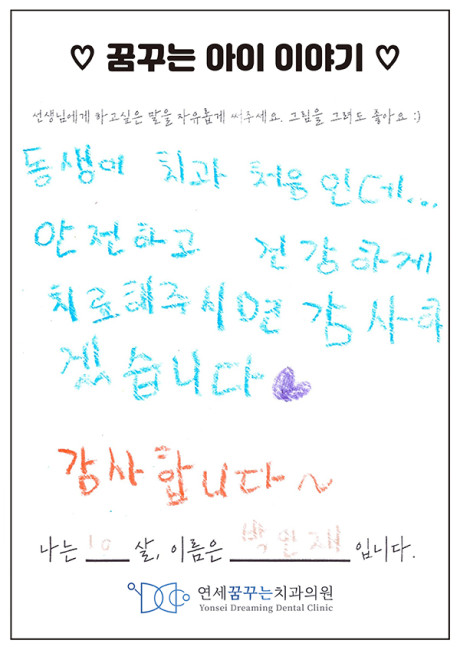 ♡ 꿈꾸는 아이 이야기 ♡
선생님에게 하고싶은 말을 자유롭게 써주세요. 그림을 그려도 좋아요 :)
동생에 치과 처음인데...
안전하고 건강하게
치료해주시면 감사하
겠습니다
감사합니다~
나는 10 살, 이름은 박인재 입니다.
연세꿈꾸는치과의원
Yonsei Dreaming Dental Clinic